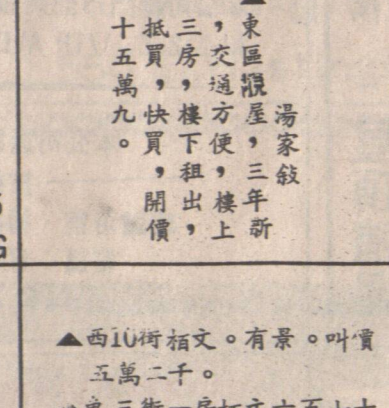 湯家敍
▲東區現屋，三年新
，交通方便，樓上
三房，樓下租出，
抵買，快買，開價
十五萬九。
▲西10街栢文。有景。叫價
五萬二千。